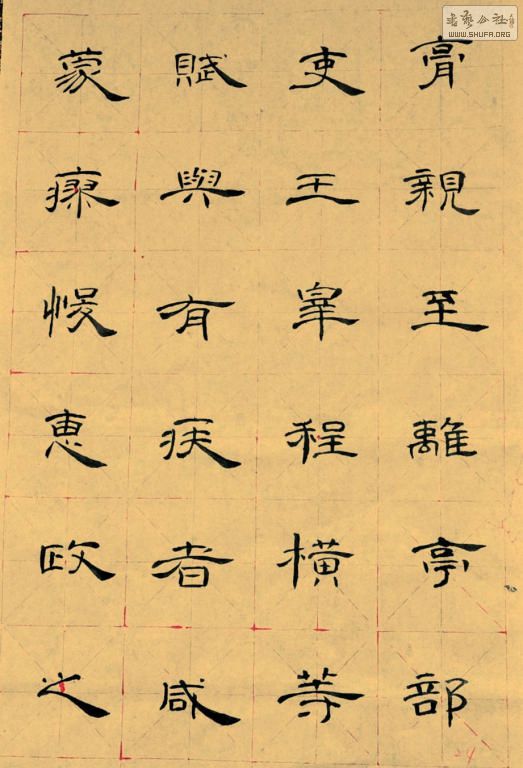 膏親至離亭部
吏王皋程橫等
賦與有疾者咸
蒙瘳悛惠政之
書藝公社
WWW.SHUFA.ORG
24